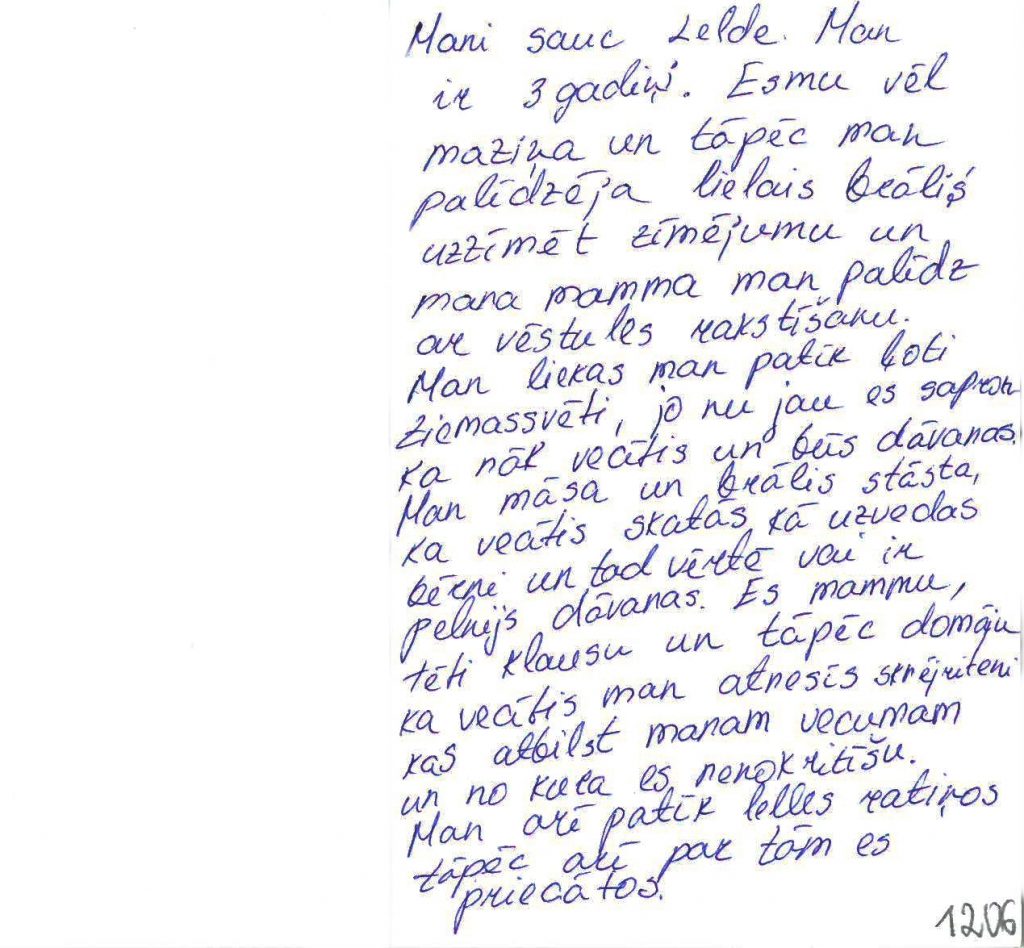 Mani sauc Lelde. Man
ir 3 gadiņi. Esmu vēl
maziņa un tāpēc man
palīdzēja lielais brālis
uzzīmēt zīmējumu un
mana mamma man palīdz
ar vēstules rakstīšanu.
Man liekas man patīk ļoti
Ziemassvēti, jo nu jau es saprotu
ka nāk vecītis un būs dāvanas.
Man māsa un brālis stāsta,
ka vecītis skatās kā uzvedas
bērni un tad vērtē vai ir
pelnījs dāvanas. Es mammu,
tēti klausu un tāpēc domāju
ka vecītis man atnesīs skrējriteni
kas atbilst manam vecumam
un no kura es nenokritīšu.
Man arī patīk lelles ratiņos
tāpēc arī par tām es
priecātos.
1206